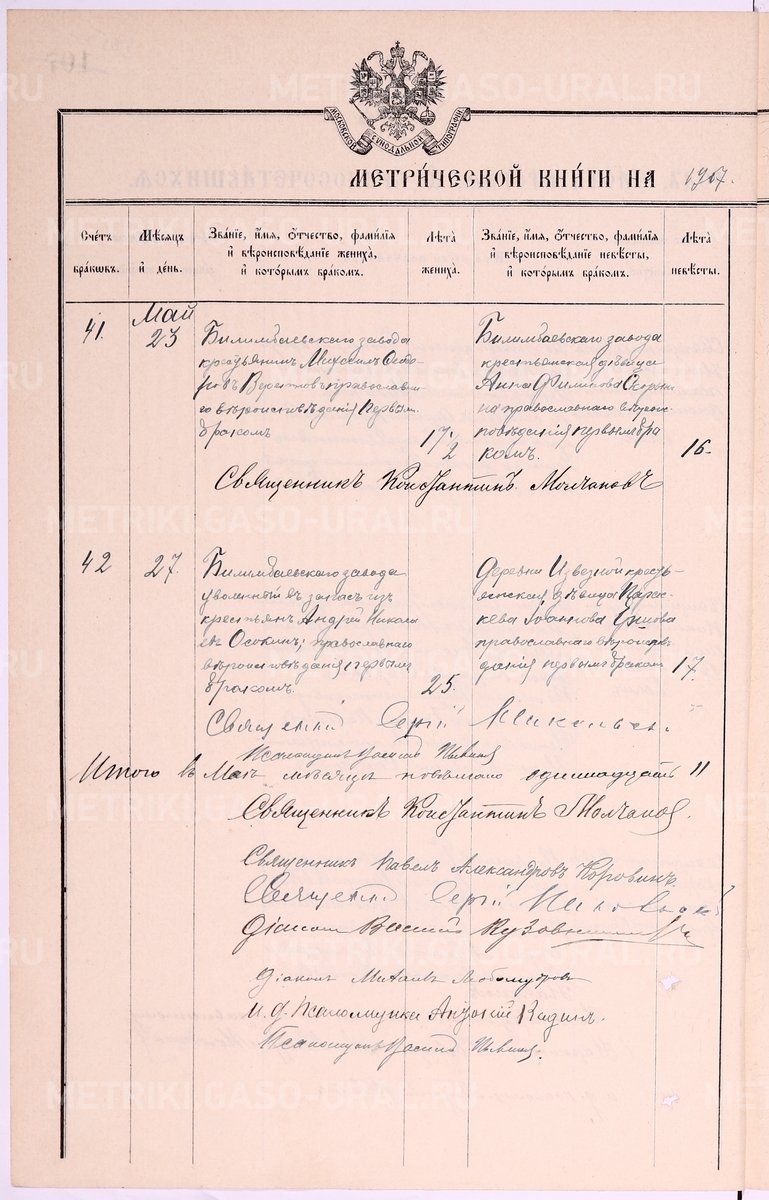 МОСКОВСКОЙ СѴНОДАЛЬНОЙ ТИПОГРАФІИ
МЕТРИ́ЧЕСКОЙ КНИ́ГИ НА 1907.
Сче́тъ бра́кѡвъ.
Мѣ́сяцъ и҆ де́нь.
Зва́нїе, и҆́мя, ѻ҆́тчество, фами́лїя и҆ вѣроисповѣ́данїе жениха̀, и҆ кото́рымъ бра́комъ.
Лѣ́та жениха̀.
Зва́нїе, и҆́мя, ѻ҆́тчество, фами́лїя и҆ вѣроисповѣ́данїе невѣ́сты, и҆ кото́рымъ бра́комъ.
Лѣ́та невѣ́сты.
41.
Май
23
Билимбаевскаго завода
крестьянинъ Михаилъ Ѳедо-
ровъ православна
го вѣроисповѣданія первымъ
бракомъ
17 1/2
Билимбаевскаго завода
крестьянская дѣвица
Анна Филипова
на православнаго вѣроис
повѣданія первымъ бра
комъ.
16
Священникъ Константинъ Молчановъ
42
27.
Билимбаевскаго завода
уволенный въ запасъ изъ
крестьянъ Андрей Никола
евъ Осокинъ; православнаго
вѣроисповѣданія первымъ
бракомъ.
25.
Деревни Извезной кресть-
янская дѣвица Парас-
кева Іоаннова
православнаго вѣроисповѣ
данія первымъ бракомъ
17.
Священникъ Сергій
Псаломщикъ Василій
Итого въ Маѣ мѣсяцѣ повѣнчано одиннадцать 11
Священникъ Константинъ Молчановъ.
Священникъ Павелъ Александровъ Коровинъ.
Священникъ Сергій
Діаконъ Василій
Діаконъ Любомудровъ
и. д. Псаломщика Кадинъ.
Псаломщикъ Василій
METRIKI.GASO-URAL.RU